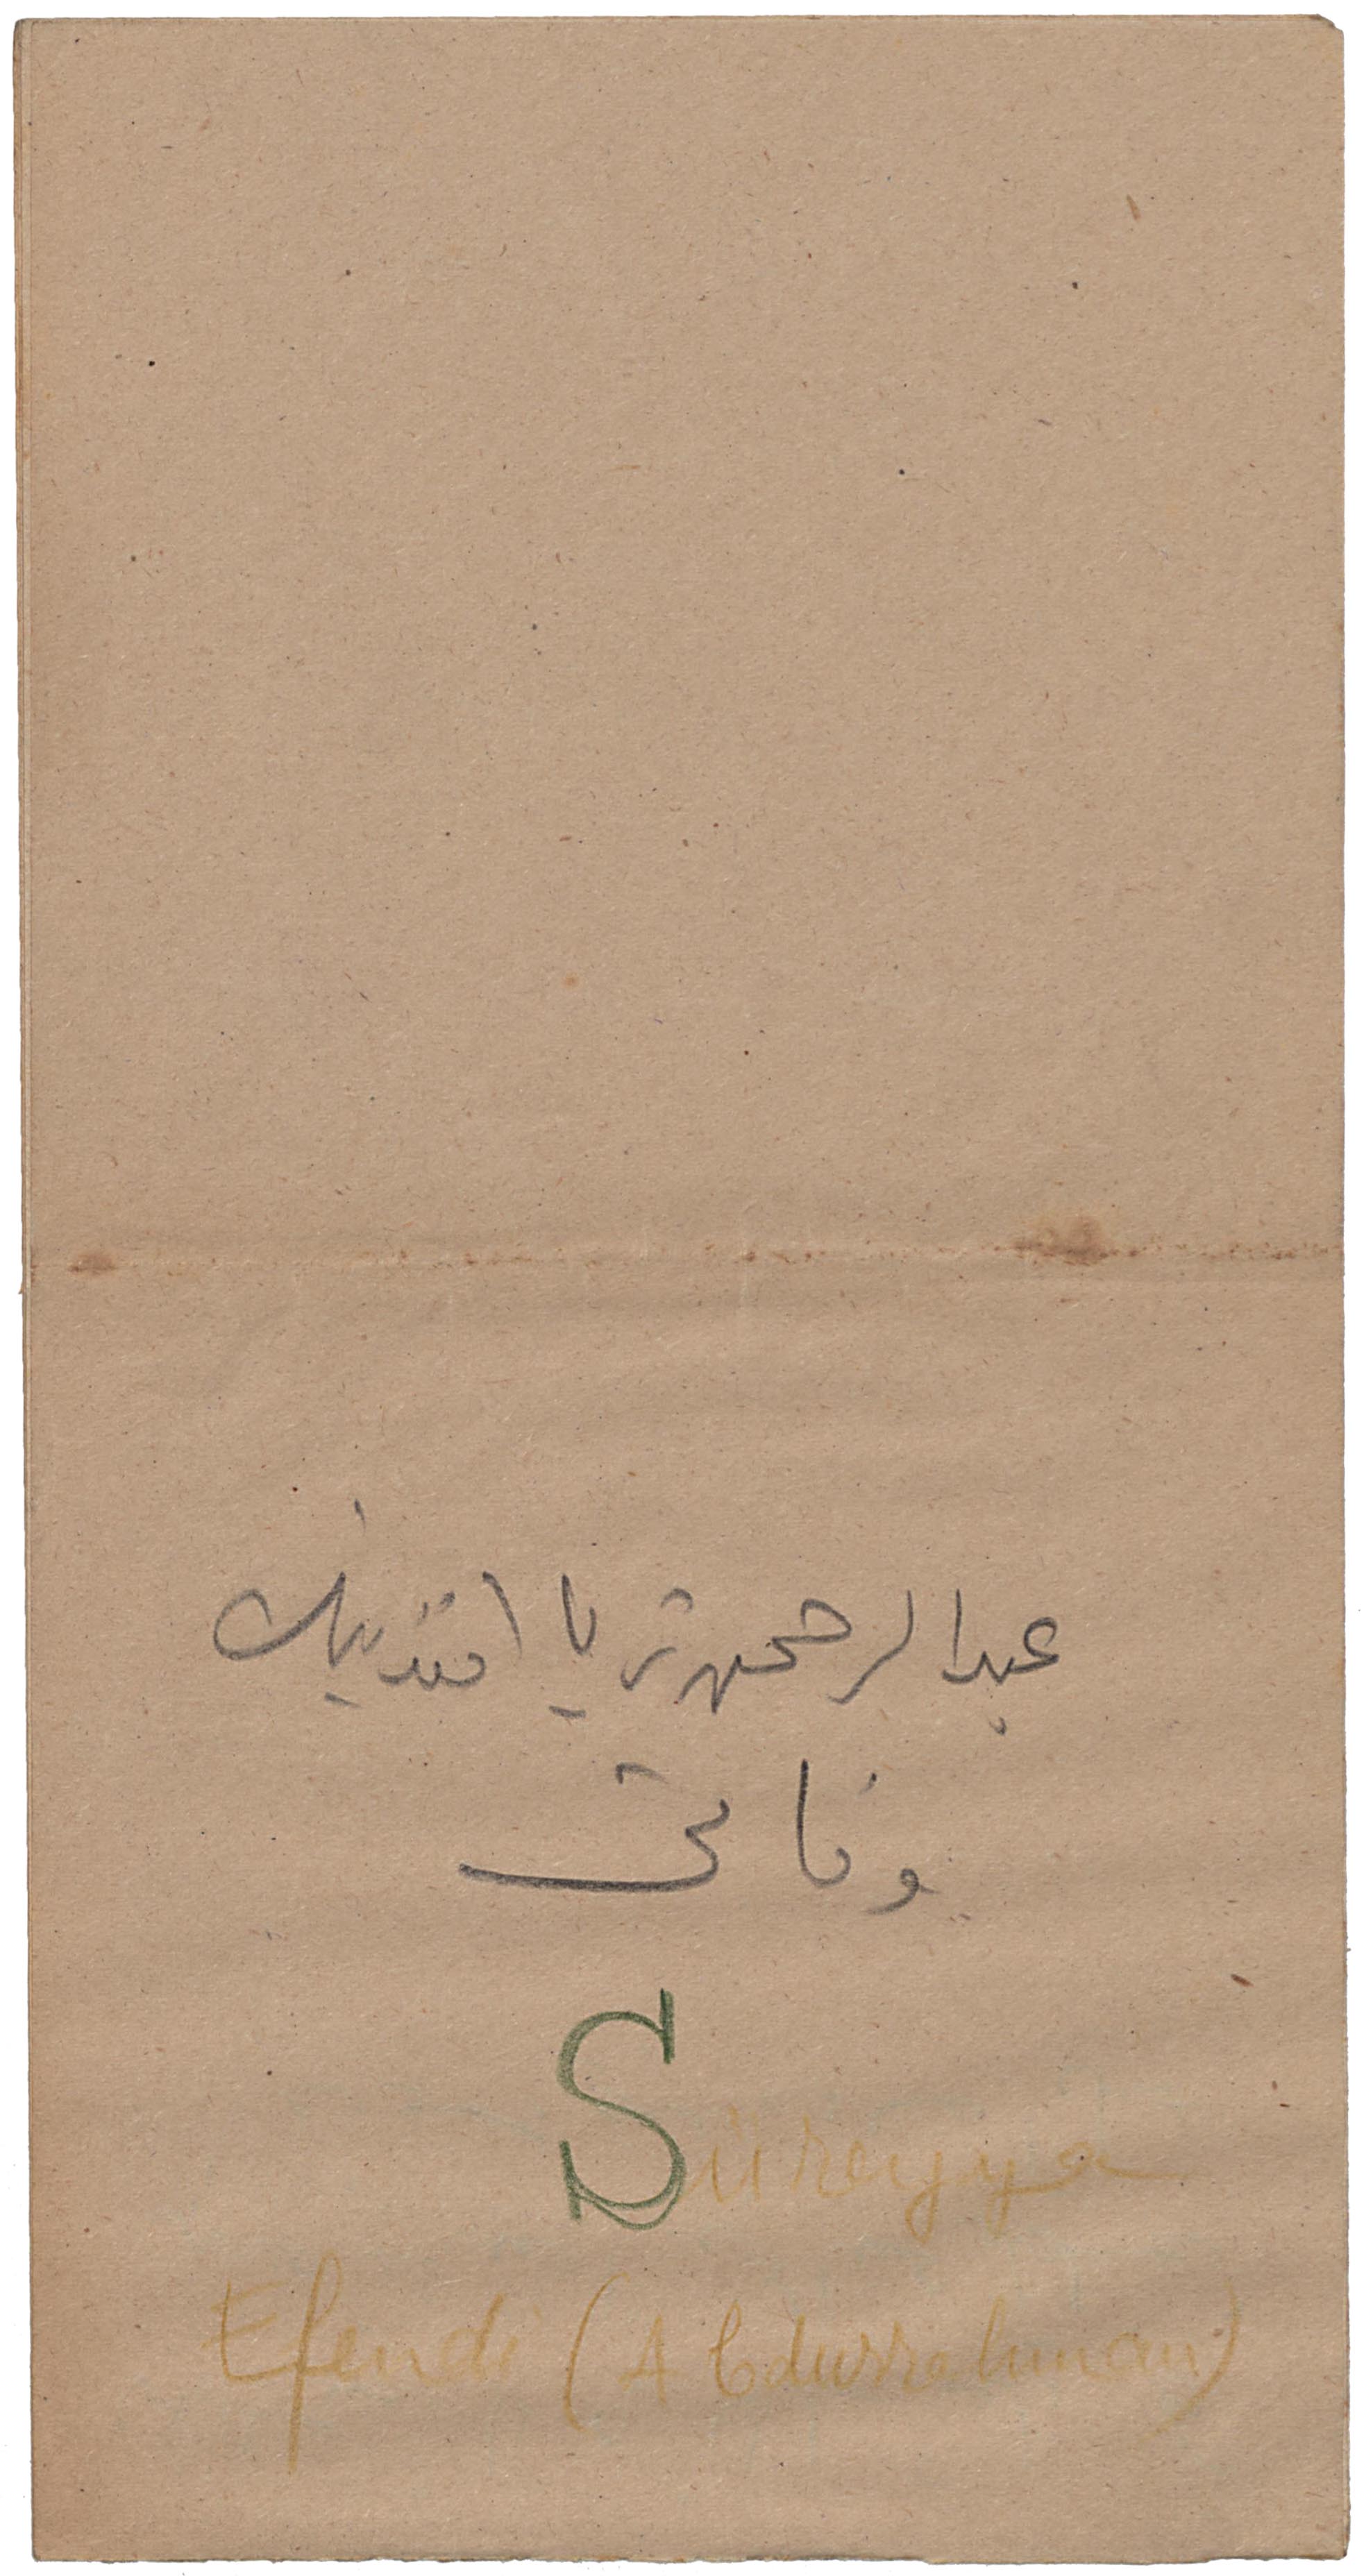 عبدالرحمن ثريا افندينك
وفاتى
Süreyya
Efendi (Abdurrahman)